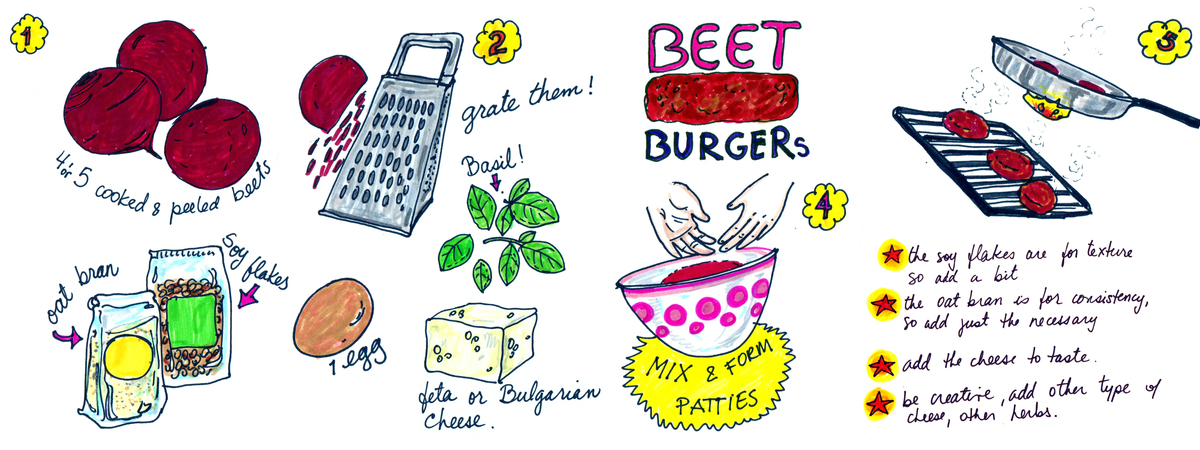 1
4 or 5 cooked & peeled beets
2
grate them!
Basil!
oat bran
Soy flakes
1 egg
feta or Bulgarian
Cheese.
BEET
BURGERS
4
MIX & FORM
PATTIES
5
the soy flakes are for texture
so add a bit
the oat bran is for consistency,
so add just the necessary
add the cheese to taste.
be creative, add other type of
cheese, other herbs.